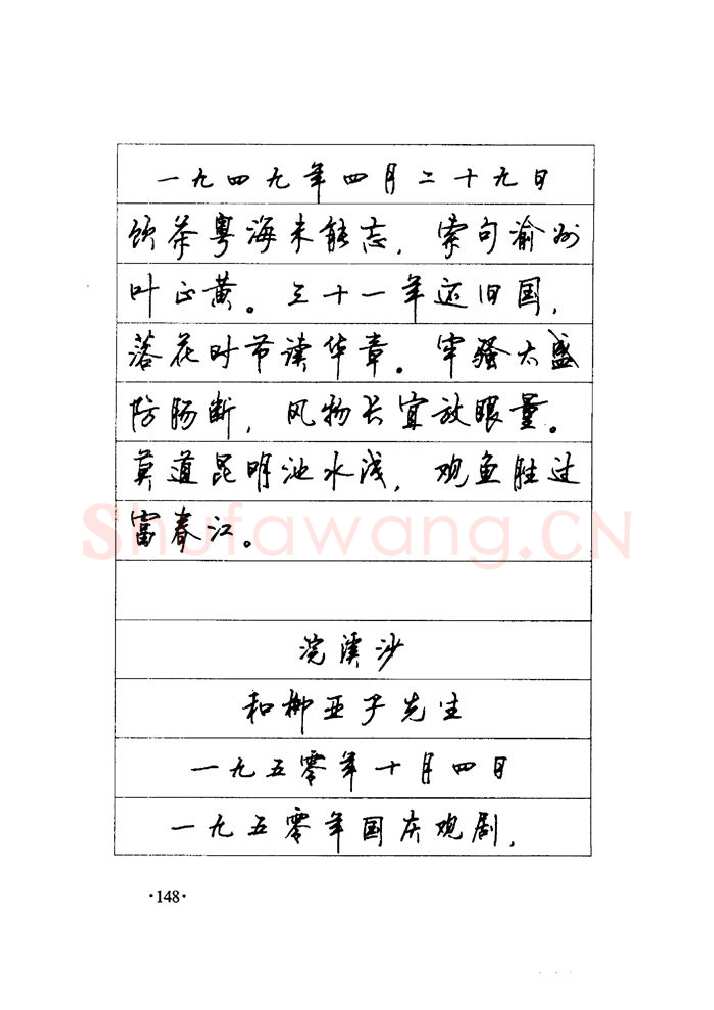 一九四九年四月二十九日
饮茶粤海未能忘，索句渝州
叶正黄。三十一年还旧国，
落花时节读华章。牢骚太盛
防肠断，风物长宜放眼量。
莫道昆明池水浅，观鱼胜过
富春江。
Shufawang.CN
浣溪沙
和柳亚子先生
一九五零年十月四日
一九五零年国庆观剧，
·148·